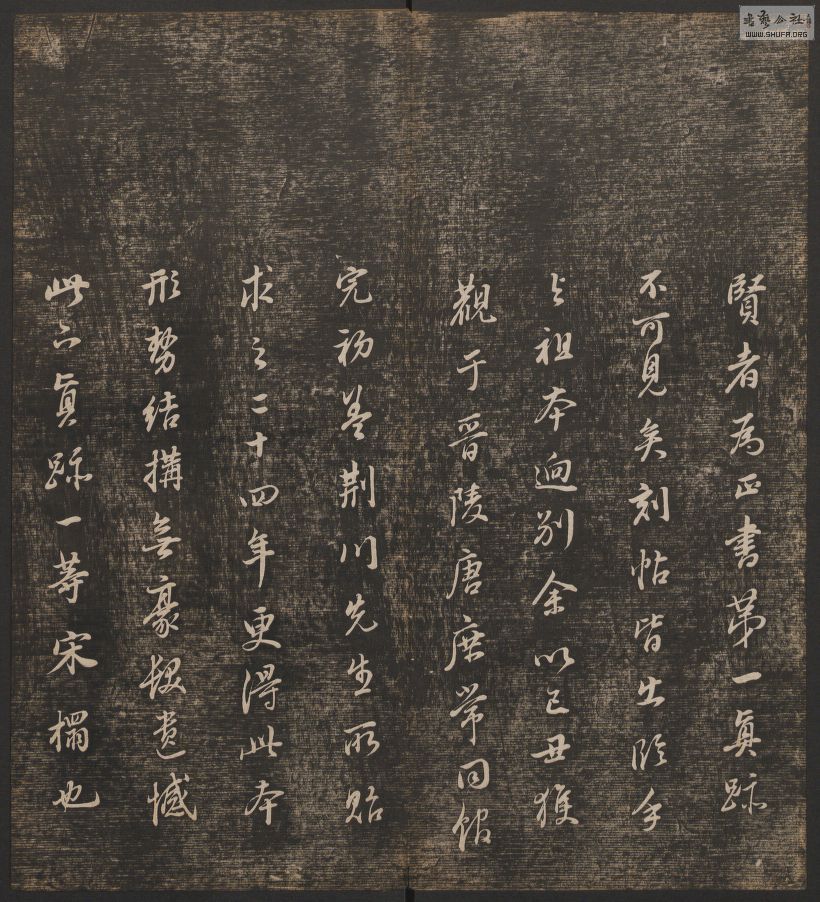 賢者為正書第一真跡
不可見矣刻帖皆出臨手
與祖本迥別余以己丑獲
觀于晉陵唐庶常同館
完初蓋荊川先生所貽
求之二十四年更得此本
形勢結構無豪髮遺憾
此下真跡一等宋榻也
書藝公社
WWW.SHUFA.ORG